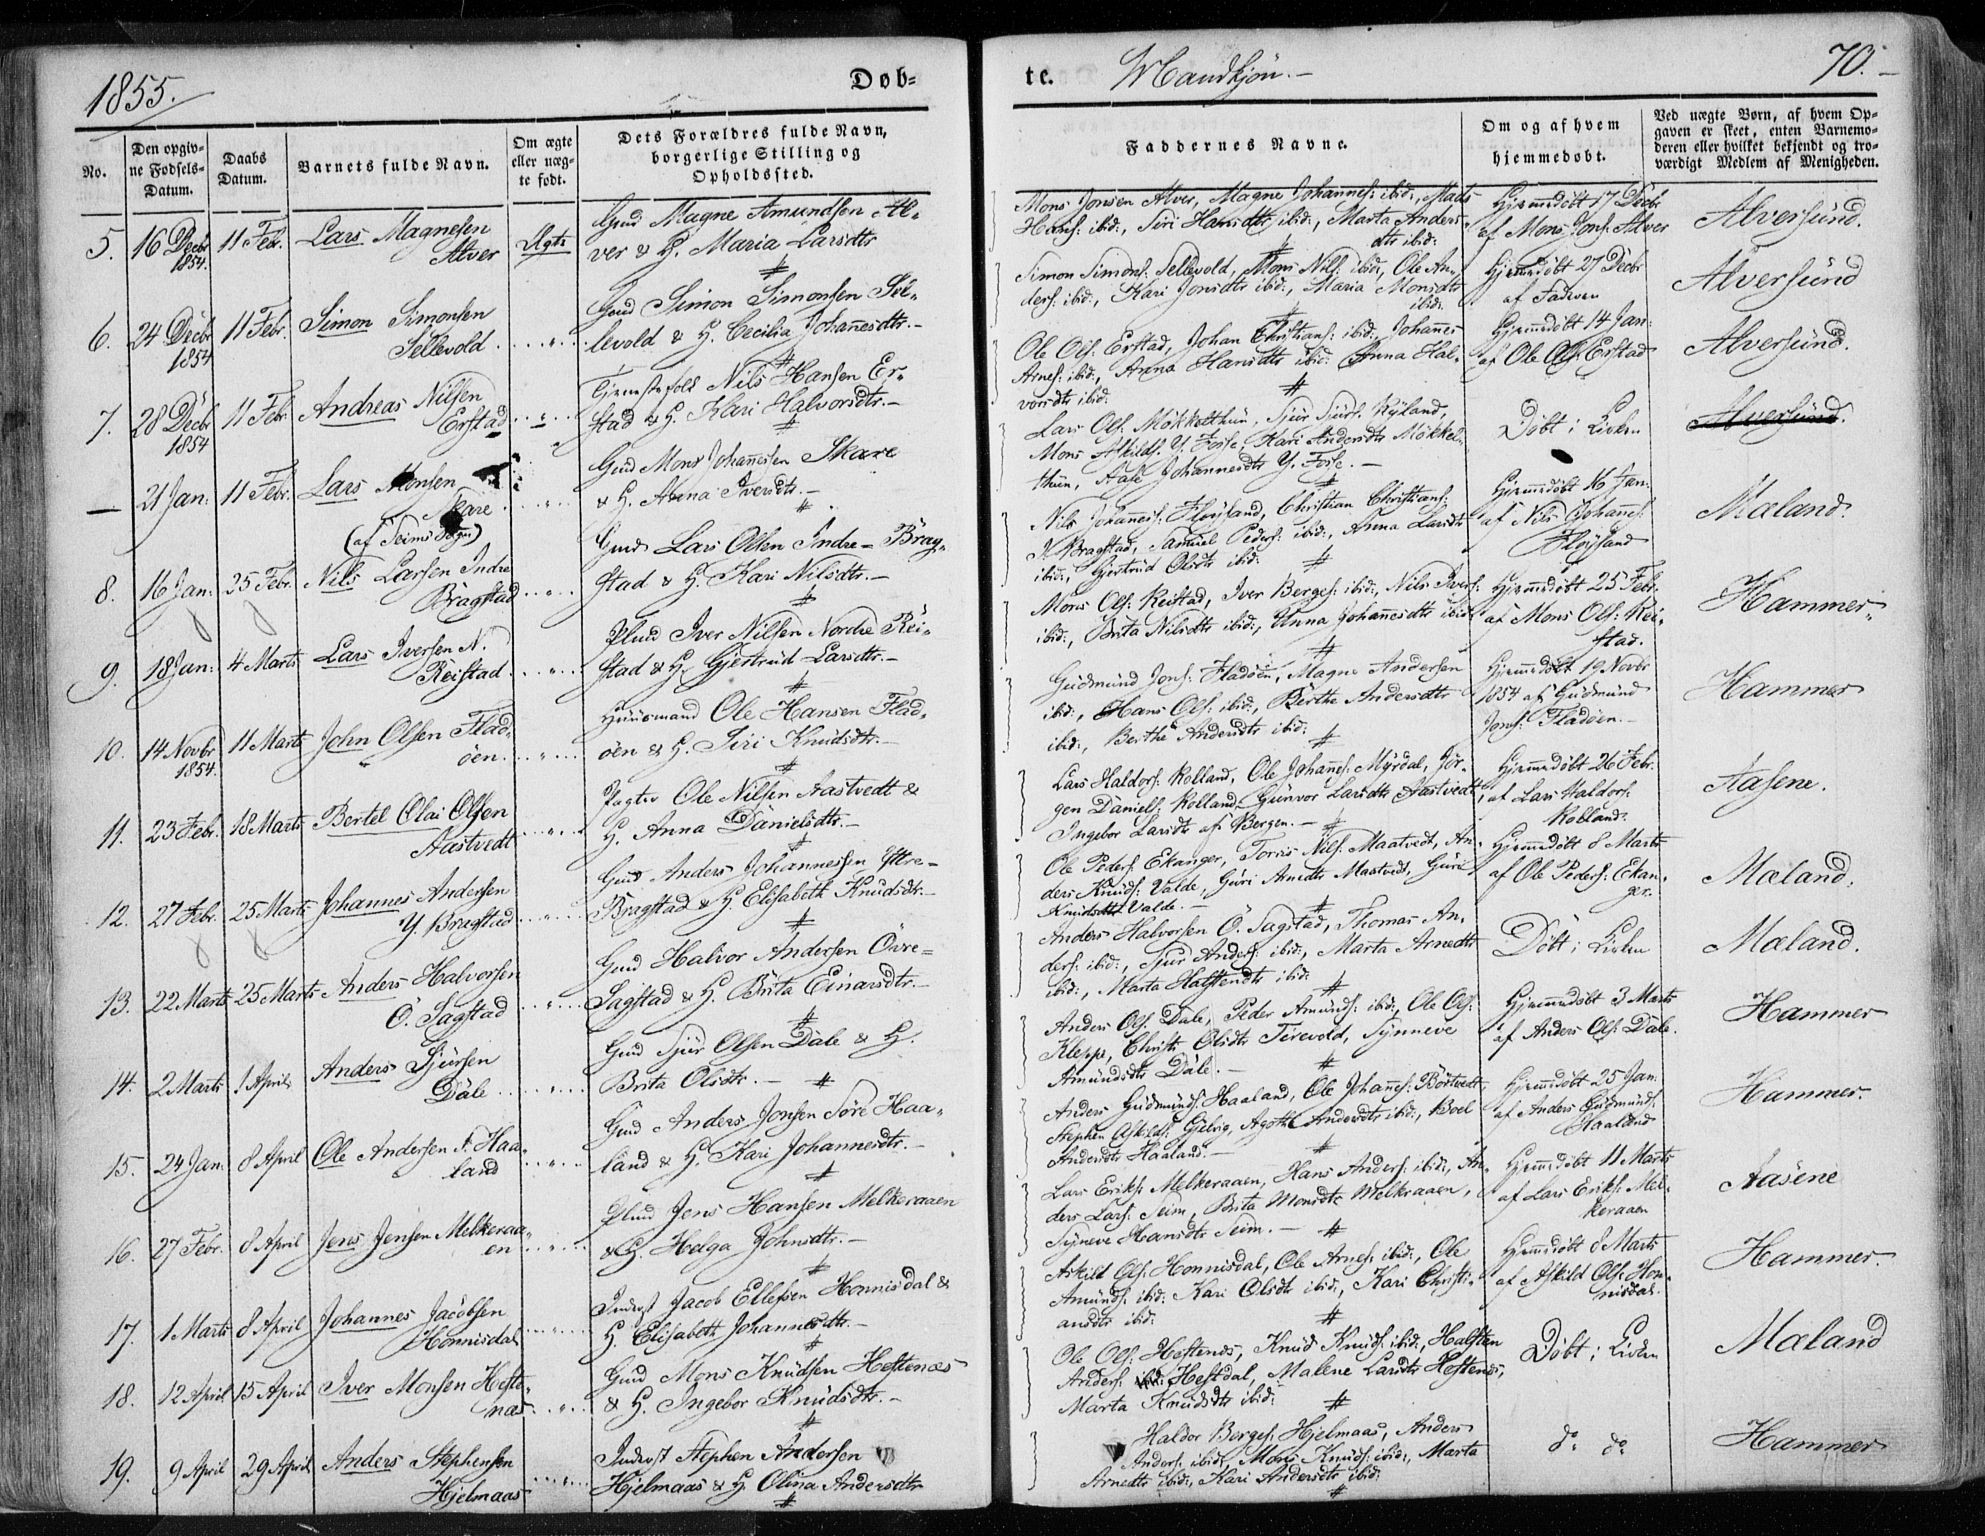 1855.
Døb=
te.
Mandkjön.
70.
No.
Den opgiv-
ne Fødsels-
Datum.
Daabs
Datum.
Barnets fulde Navn.
Om ægte
eller uæg-
te født.
Dets Forældres fulde Navn,
borgerlige Stilling og
Opholdssted.
Faddernes Navne.
Om og af hvem
hjemmedøbt.
Ved uægte Børn, af hvem Op-
gaven er skeet, enten Barnemo-
deren eller hvilket bekjendt og tro-
værdigt Medlem af Menigheden.
5. 16 Decbr 1854. 11 Febr. Lars Magnesen
Alver
Ægte
Gmd Magne Amundsen Al-
ver & H. Maria Larsdtr
Mons Jonsen Alver, Magne Johannes: ibid:, Mads
Hans: ibid:, Siri Hansdtr ibid:, Marta Anders-
dtr ibid:
Hjemmedöbt 17 Decbr
af Mons Jons: Alver
Alversund.
6. 24 Decbr 1854 11 Febr. Simon Simonsen
Sellevold
Gmd Simon Simonsen Sel-
levold & H. Cecilia Johanesdtr.
Simon Simons: Sellevold, Mons Nils: ibid:, Ole An-
ders: ibid:, Kari Jonsdtr ibid:, Maria Monsdtr
ibid:
Hjemmedöbt 27 Decbr
af Faderen
Alversund
7. 28 Decbr 1854 11 Febr. Andreas Nilsen
Erstad
Nils Hansen Er-
stad & H. Kari Halvorsdtr.
Ole Ols: Erstad, Johan Christians: ibid: Johanes
Arnes: ibid:, Anna Hansdtr ibid: Anna Hal-
vorsdtr ibid:
Hjemmedöbt 14 Jan:
af Ole Ols: Erstad
Alversund.
— 21 Jan: 11 Febr. Lars Monsen
Skare
(af Seims Sogn)
Gmd Mons Johanesen Skare
& H. Anna Iversdtr.
Lars Ols: Mökkelthun, Sjur Sjurs: Ryland,
Mons Askilds: Y. Fosse, Kari Andersdtr Mökkel-
thun, Aase Johannesdtr Y. Fosse.
Döbt i Kirken
Alversund.
8. 16 Jan: 25 Febr. Nils Larsen Indre
Bragstad
Gmd Lars Olsen Indre-Brag-
stad & H. Kari Nilsdtr.
Nils Johanes: Flöysand, Christian Christians:
I. Bragstad, Samuel Peders: ibid:, Anna Larsdtr
ibid:, Gjertrud Olsdtr ibid:
Hjemmedöbt 16 Jan:
af Nils Johanes:
Flöysand
Mæland.
9. 18 Jan: 4 Marts Lars Iversen N.
Reistad
Iver Nilsen Nordre Rei-
stad & H. Gjertrud Larsdtr.
Mons Ols: Reistad, Iver Berges: ibid:, Nils Ivers:
ibid:, Brita Nilsdtr ibid:, Anna Johanesdtr ibid:
Hjemmedöbt 25 Febr.
af Mons Ols: Rei-
stad.
Hammer
10. 14 Novbr 1854. 11 Marts John Olsen Flad-
öen.
Huusmand Ole Hansen Flad-
öen & H. Siri Knudsdtr.
Gudmund Jons: Fladöen, Magne Andersen
ibid:, Hans Ols: ibid:, Berthe Andersdtr
ibid:, Berthe Andersdtr ibid:
Hjemmedöbt 19 Novbr
1854 af Gudmund
Jons: Fladöen.
Hammer
11. 23 Febr. 18 Marts Bertel Olai Olsen
Aastvedt
Ole Nilsen Aastvedt &
H. Anna Danielsdtr.
Lars Haldors: Kolland, Ole Johanes: Myrdal, Jör-
gen Daniels: Kolland, Gunvor Larsdtr Aastvedt,
Ingebor Larsdtr af Bergen.
Hjemmedöbt 26 Febr.
af Lars Haldors:
Kobland.
Aasene.
12. 27 Febr. 25 Marts Johannes Andersen
Y. Bragstad
Gmd Anders Johannessen Yttre-
Bragstad & H. Elisabeth Knudsdtr.
Ole Peders: Ekanger, Torris Nils: Maatvedt, An-
ders Knuds: Valde, Guri Arnedtr Mastvedt, Guri
Knudsdtr Valde.
Hjemmedöbt 8 Marts
af Ole Peders: Ekan-
ger.
Mæland.
13. 22 Marts 25 Marts Anders Halvorsen
Ö. Sagstad
Gmd Halvor Andersen Övre-
Sagstad & H. Brita Einarsdtr.
Anders Halvorsen Ö. Sagstad, Thomas An-
ders: ibid:, Sjur Anders: ibid:, Marta Arnedtr
ibid:, Marta Halstendtr ibid:
Döbt i Kirken
Mæland.
14. 2 Marts 1 April Anders Sjursen
Dale
Gmd Sjur Olsen Dale & H.
Brita Olsdtr.
Anders Ols: Dale, Peder Amunds: ibid:, Ole Ols:
Kleppe, Christi Olsdtr Tirevold, Synneve
Amundsdtr Dale.
Hjemmedöbt 3 Marts
af Anders Ols: Dale.
Hammer
15. 24 Jan: 8 April Ole Andersen S. Haa-
land
Gmd Anders Jonsen Söre Haa-
land & H. Kari Johannesdtr.
Anders Gudmunds: Haaland, Ole Johanes: Börtvedt,
Stephen Askilds: Gjelvig, Agothe Andersdtr ibid:, Boel
Andersdtr Haaland.
Hjemmedöbt 25 Jan:
af Anders Gudmunds:
Haaland
Hammer.
16. 27 Febr. 8 April Jens Jensen Melkeraa-
en
Jens Hansen Melkeraaen
& H. Helga Johnsdtr.
Lars Eriks: Melkeraaen, Hans Anders: ibid:, An-
ders Lars: Seim, Brita Monsdtr Melkraaen,
Synneve Hansdtr Seim.
Hjemmedöbt 11 Marts
af Lars Eriks: Mel-
keraaen
Aasene
17. 1 Marts 8 April Johannes Jacobsen
Honnisdal
Inderst Jacob Ellefsen Honnisdal &
H. Elisabeth Johannesdtr.
Askild Ols: Honnisdal, Ole Arnes: ibid:, Ole
Amunds: ibid: Kari Olsdtr ibid:, Kari Christi-
andtr ibid:
Hjemmedöbt 8 Marts
af Askild Ols: Hon-
nisdal.
Hammer.
18. 12 April 15 April Iver Monsen Hefte-
næs
Gmd Mons Knudsen Heftenæs
& H. Ingebor Knudsdtr.
Ole Ols: Heftenæs, Knud Knuds: ibid:, Halsten
Anders: Heftdal, Malene Larsdtr Heftenæs,
Marta Knudsdtr ibid:
Döbt i Kirken
Mæland
19. 9 April 29 April Anders Stephensen
Hjelmaas
Inderst Stephen Andersen
Hjelmaas & H. Olina Andersdtr
Haldor Berges: Hjelmaas, Anders
Anders: ibid:, Mons Knuds: ibid:, Marta
Arnedtr ibid:, Kari Andersdtr ibid:
do do
Hammer